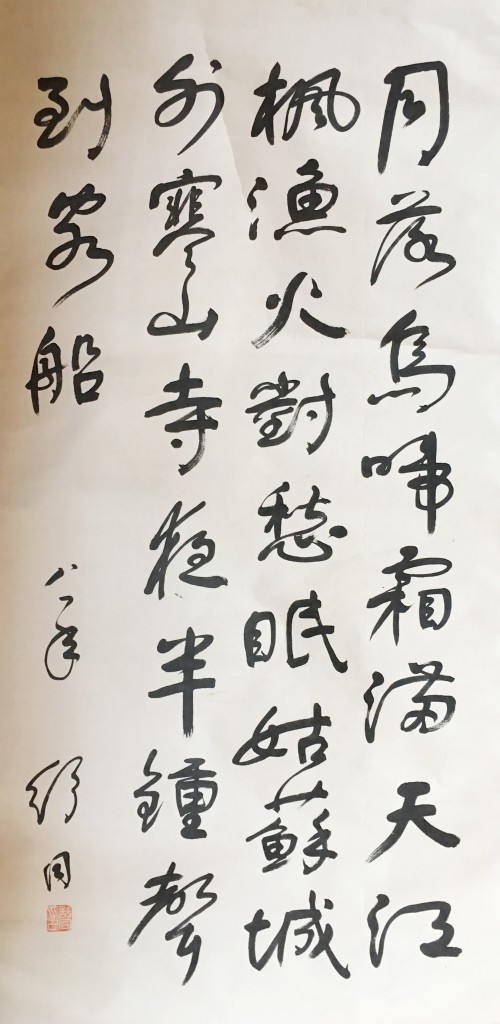 月落烏啼霜滿天江
楓漁火對愁眠姑蘇城
外寒山寺夜半鍾聲
到客船
八一年 舒同